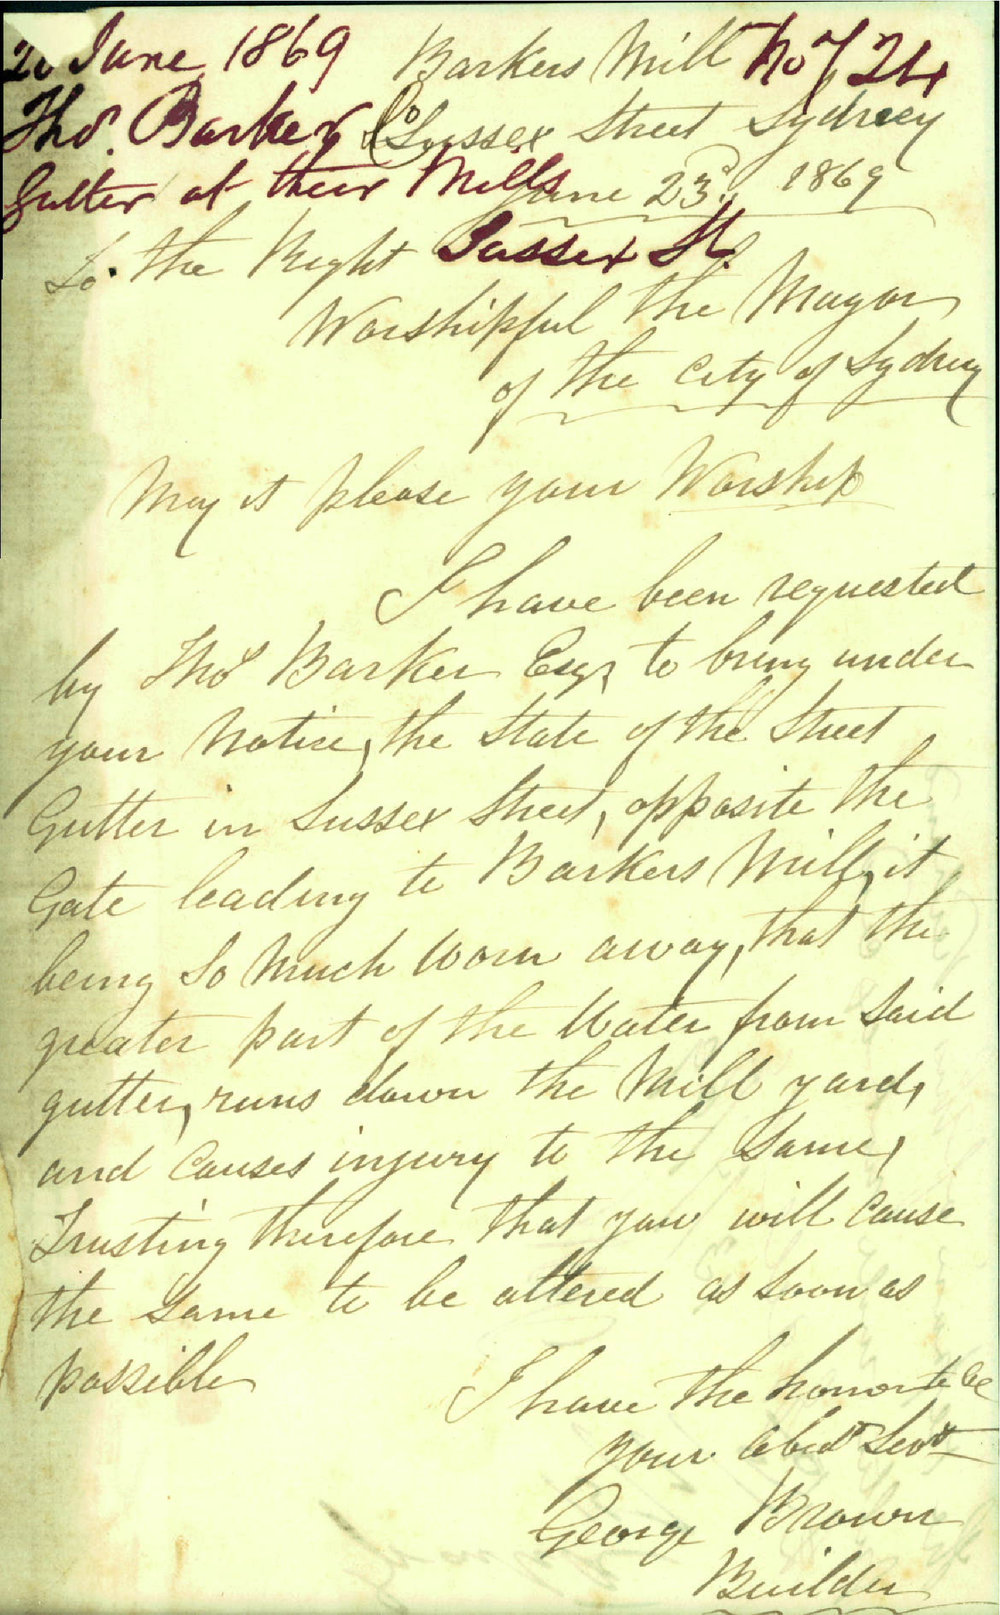 June 1869
Thos. Barker & Co
Gutter at their Mills
Sussex St.
No 724
Barkers Mill
Sussex Street Sydney
June 23rd. 1869
To. the Right
Worshipful the Mayor
of the City of Sydney
May it please your Worship
I have been requested
by Thos Barker Esqr to bring under
your Notice, the State of the Street
Gutter in Sussex Street, opposite the
Gate leading to Barkers Mill, it
being So Much Worn away, that the
greater part of the Water from Said
gutter, runs down the Mill yard,
and Causes injury to the Same,
Trusting therefore that you will Cause
the Same to be altered as Soon as
possible
I have the honor to be
your Obedt Servt
George Brown
Builder